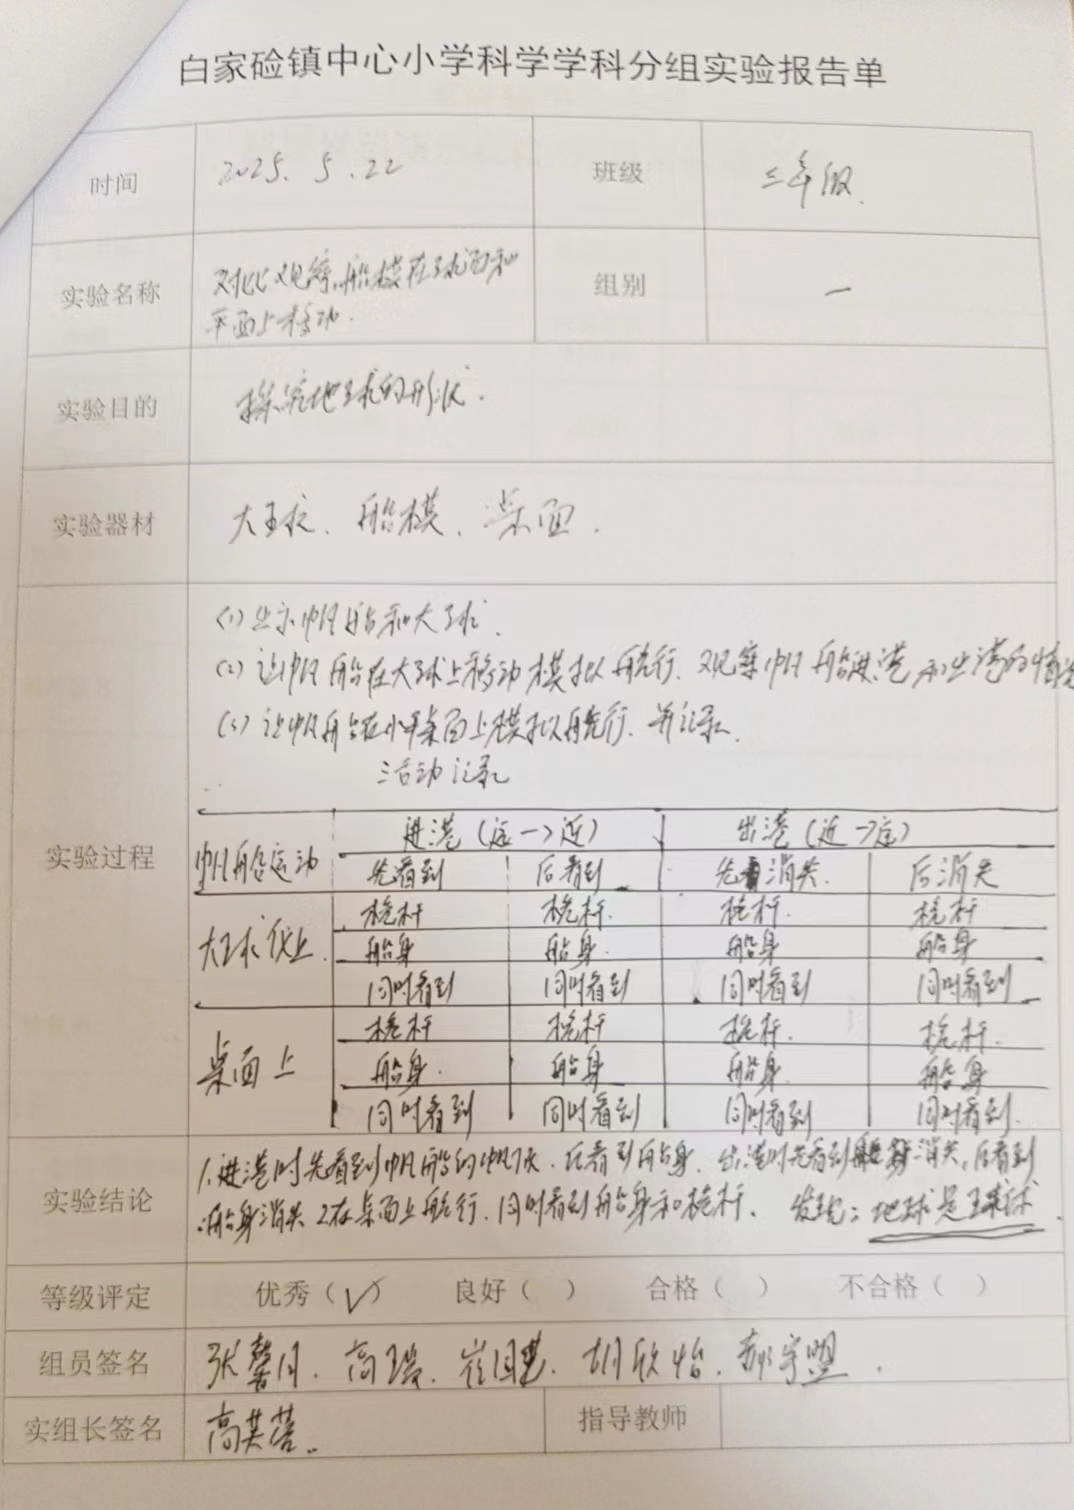 白家硷镇中心小学科学学科分组实验报告单
时间 2025.5.22 班级 三年级.
实验名称 对比观察,船模在球面和 组别 一
平面上移动.
实验目的 探究地球的形状.
实验器材 大球、船模、桌面.
(1)出示帆船和大球.
(2)让帆船在大球上移动模拟航行.观察帆船进港和出港的情况
(3)让帆船在小桌面上模拟航行.并记录.
活动记录
实验过程
进港(远→近) 出港(近→远)
帆船运动 先看到 后看到 先消失. 后消失
桅杆 桅杆. 桅杆. 桅杆
大球上. 船身 船身. 船身 船身
同时看到 同时看到 同时看到 同时看到
桅杆 桅杆 桅杆. 桅杆.
桌面上 船身. 船身 船身. 船身
同时看到 同时看到 同时看到 同时看到.
实验结论 1.进港时先看到帆船的帆,后看到船身.出港时先看到消失,后看到
船身消失 2在桌面上航行.同时看到船身和桅杆. 发现:地球是球.
等级评定 优秀(√) 良好( ) 合格( ) 不合格( )
组员签名 张馨月.高瑞.崔.胡欣怡.宇盟.
实组长签名 高芙蓉.. 指导教师